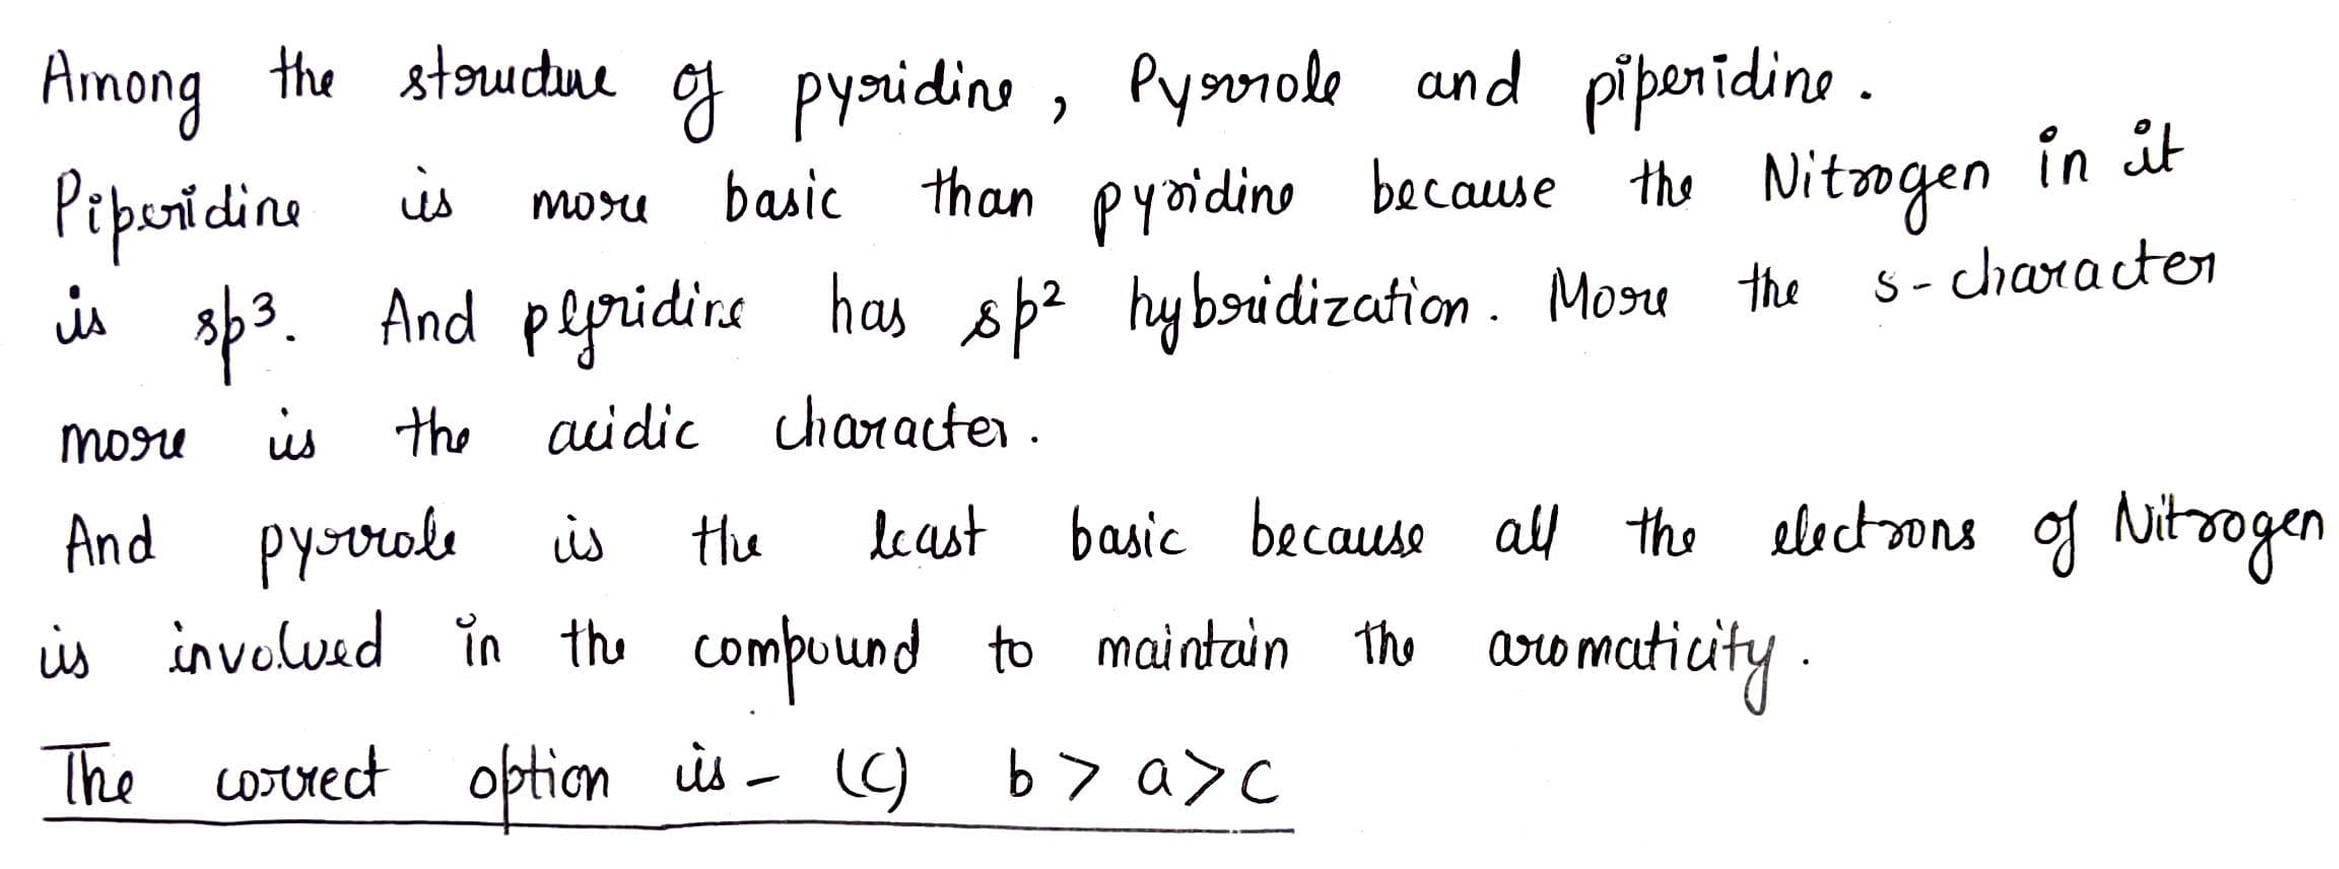 Among the structure of pyridine, Pyrrole and piperidine.
Piperidine is more basic than pyridine because the Nitrogen in it
is sp³. And pyridine has sp² hybridization. More the s-character
more is the acidic character.
And pyrrole is the least basic because all the electrons of Nitrogen
is involved in the compound to maintain the aromaticity.
The correct option is - (C) b > a > c